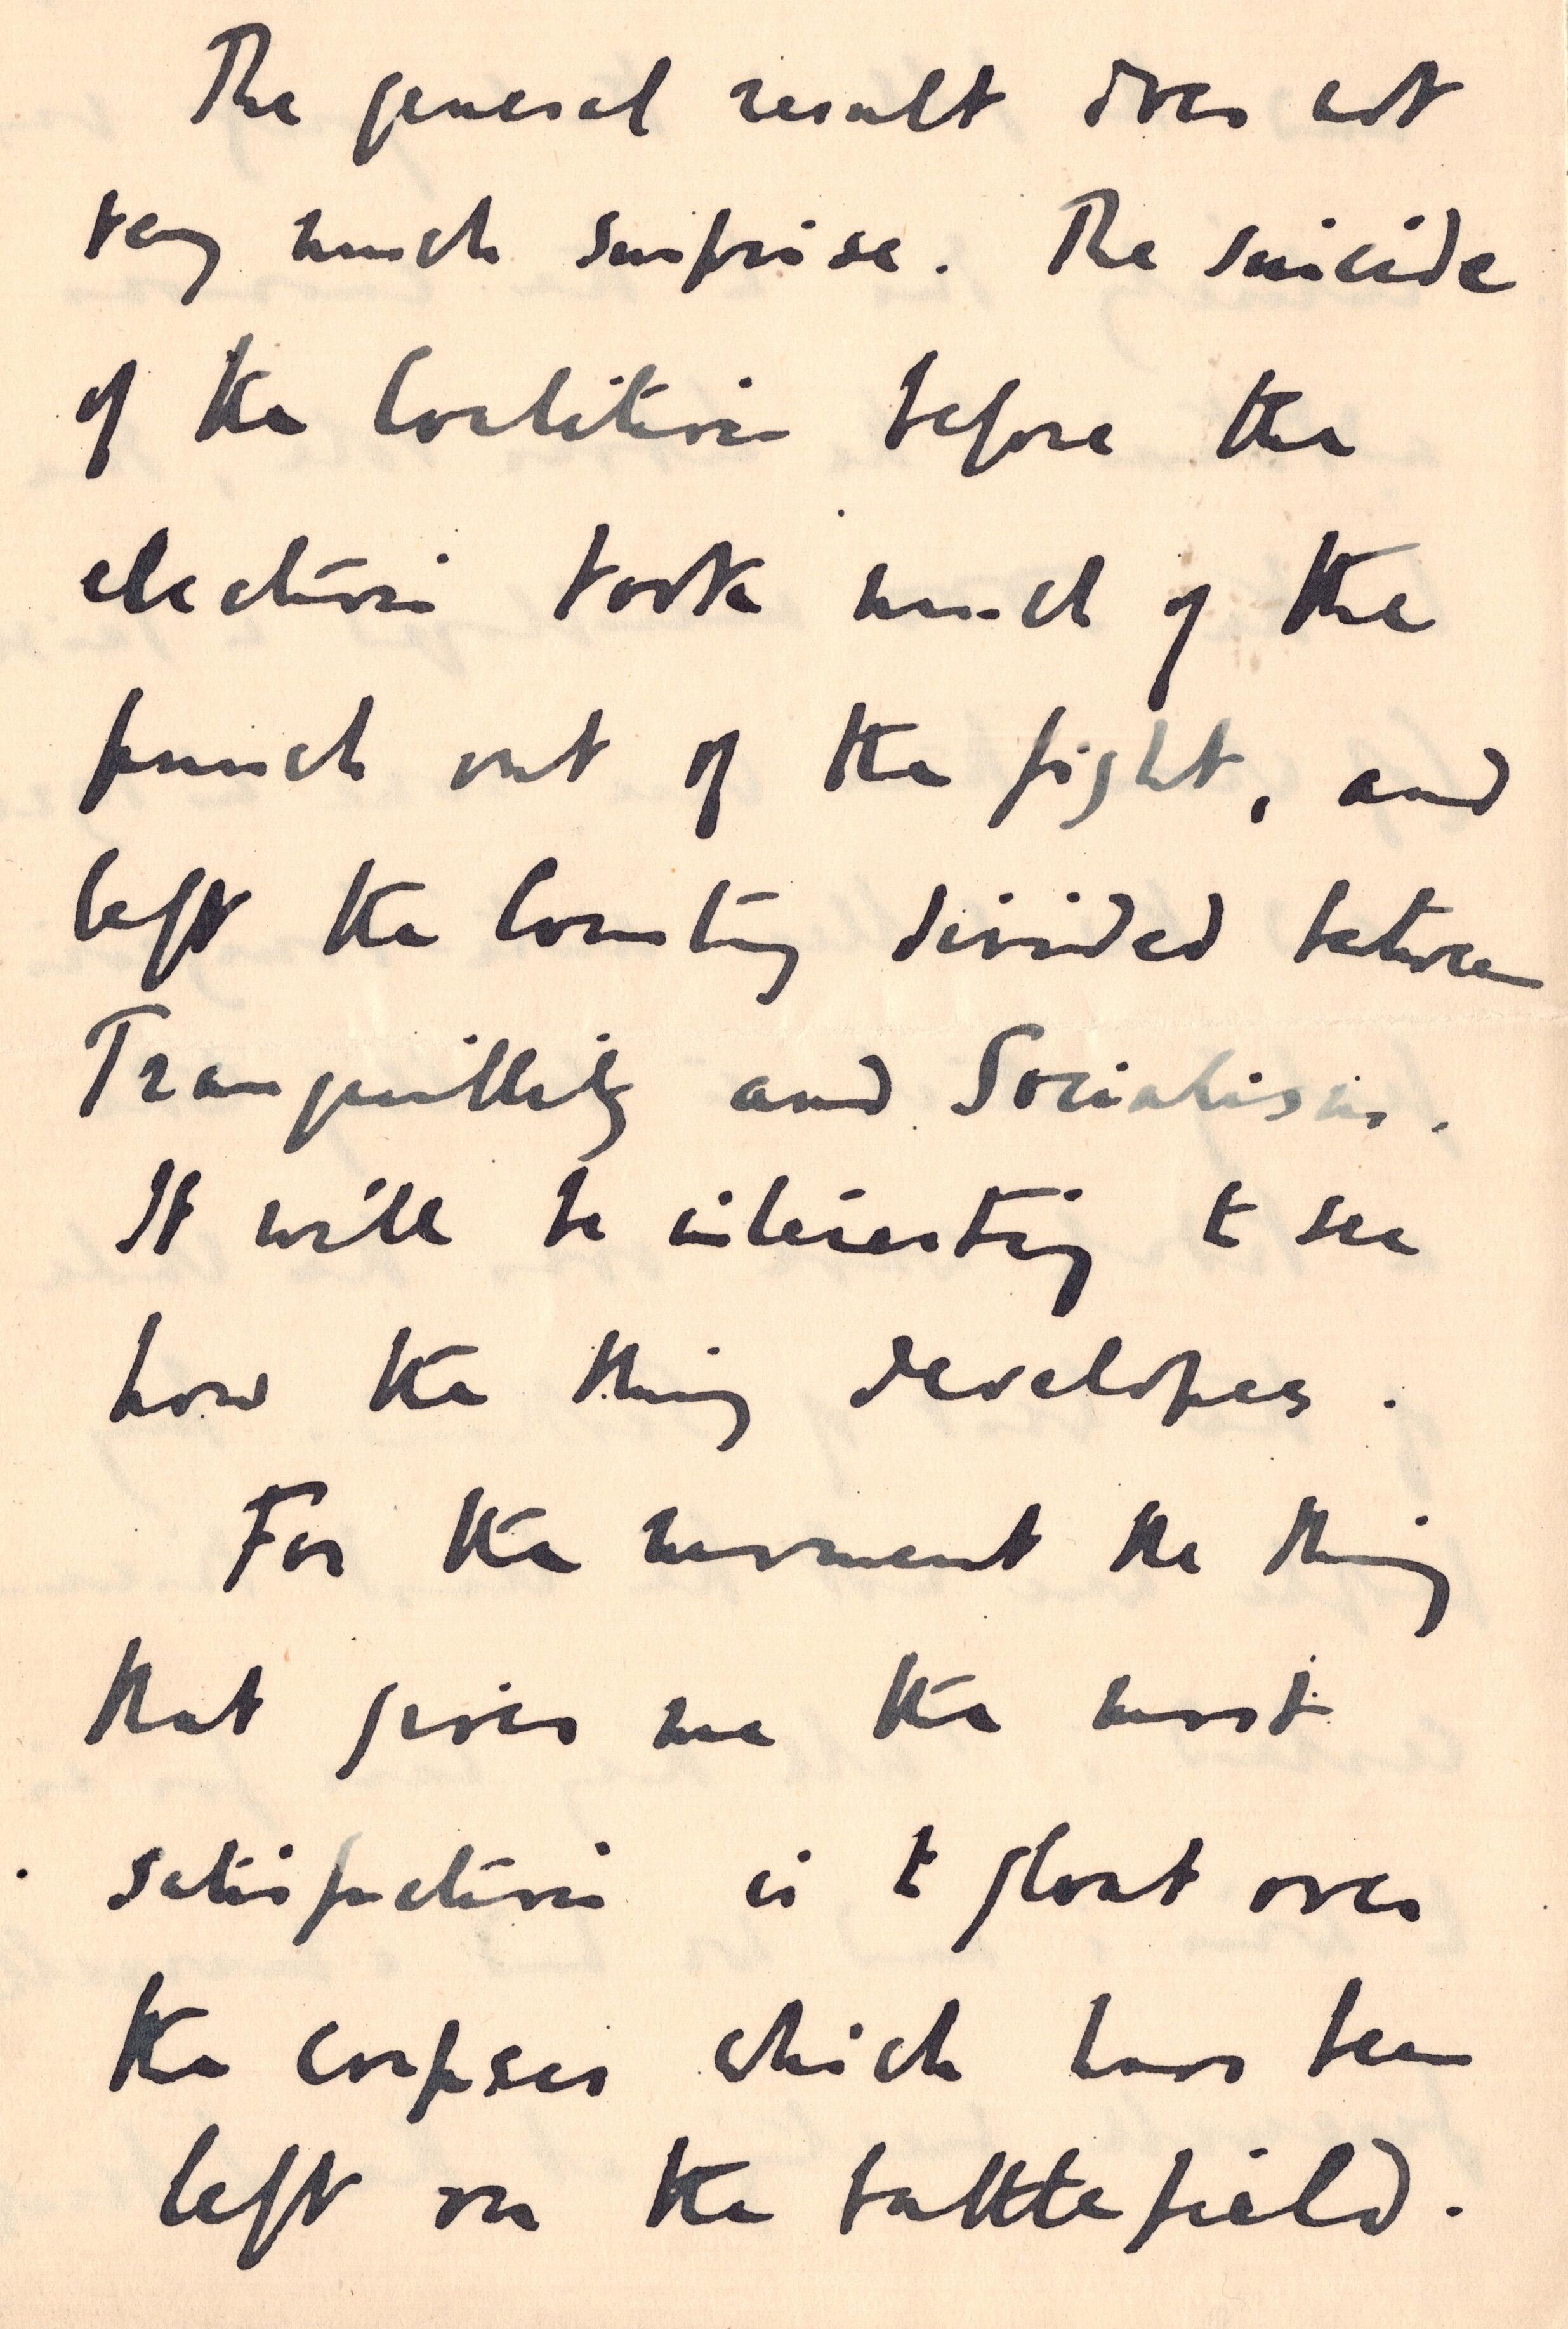 The general result does not
very much surprise. The suicide
of the Coalition before the
election took much of the
punch out of the fight, and
left the Country divided between
Tranquillity and Socialism.
It will be interesting to see
how the thing developes.
For the moment the thing
that gives me the most
satisfaction is to gloat over
the corpses which have been
left on the battlefield.